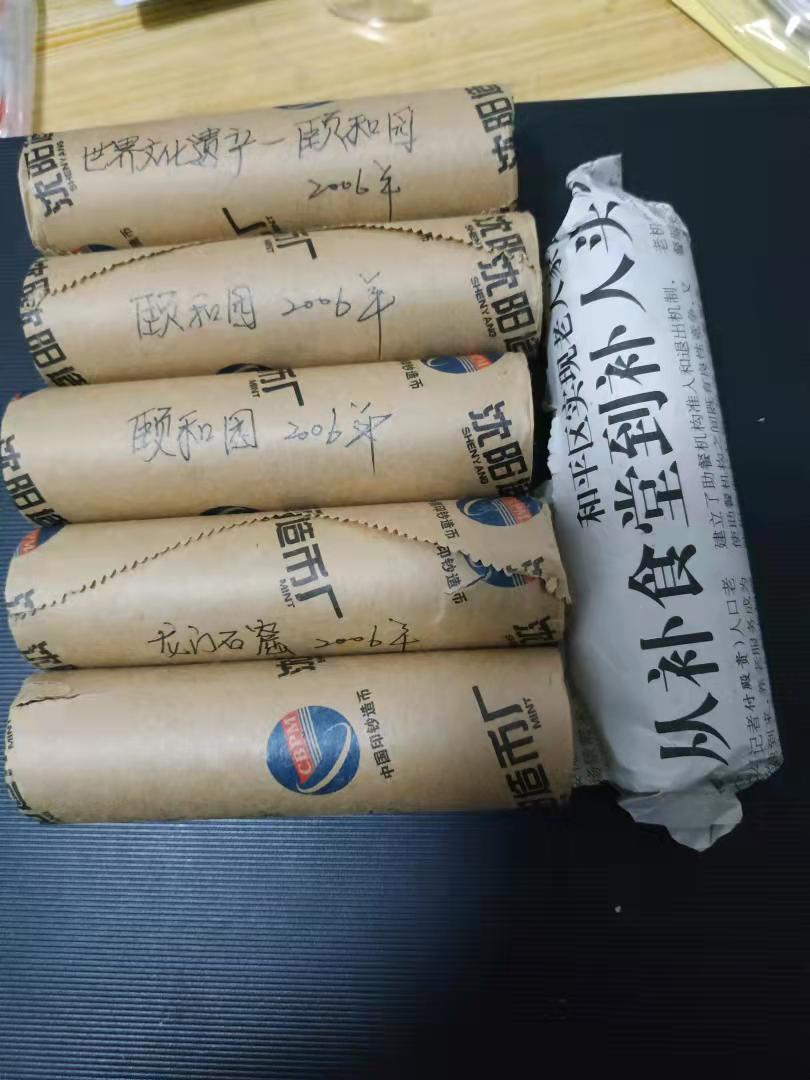 世界文化遗产一颐和园
2006年
沈阳造
SHENYANG
币厂
颐和园 2006年
沈阳
SHENYANG
沈阳造
颐和园 2006年
币厂
MINT
中国印钞造币
沈阳造
SHENYANG
沈阳造
龙门石窟 2006年
造币厂
MINT
中国印钞造币
CBPM
中国印钞造币
造币厂
MINT
和平区实现老人家
从补食堂到补人头
建立了助餐机构准入和退出机制,
记者付殿贵)人口老